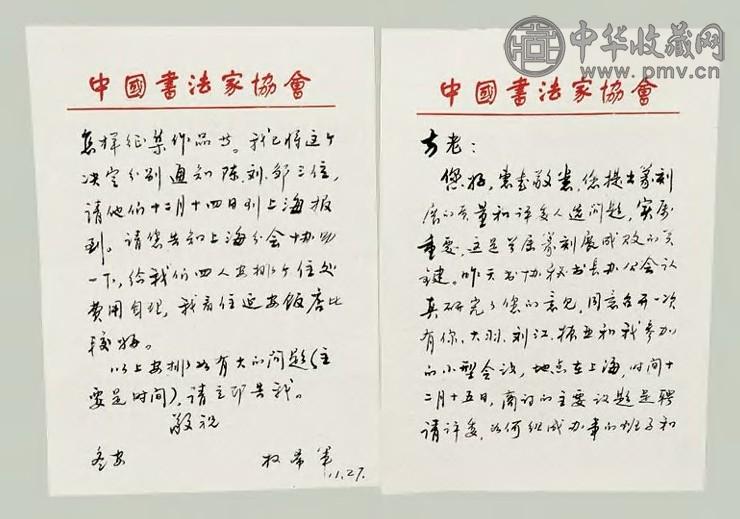 中华收藏网
www.pmv.cn
中國書法家協會
方老：
您好，惠书敬悉，您提出篆刻
展的质量和评委人选问题，实属
重要，这是首届篆刻展成败的关
键。昨天书协秘书长办公会认
真研究了您的意见，同意召开一次
有你、大羽、刘江、振亚和我参加
的小型会议，地点在上海，时间十
二月十五日，商讨的主要议题是聘
请评委，如何组成办事的班子和
中國書法家協會
怎样征集作品等。我已将这个
决定分别通知陈、刘、邹三位，
请他们十二月十四日到上海报
到。请您告知上海分会协助
一下，给我们四人安排个住处
费用自理，我看住延安饭店比
较好。
以上安排如有大的问题（主
要是时间），请立即告我。
敬祝
冬安
权希军
11.27.